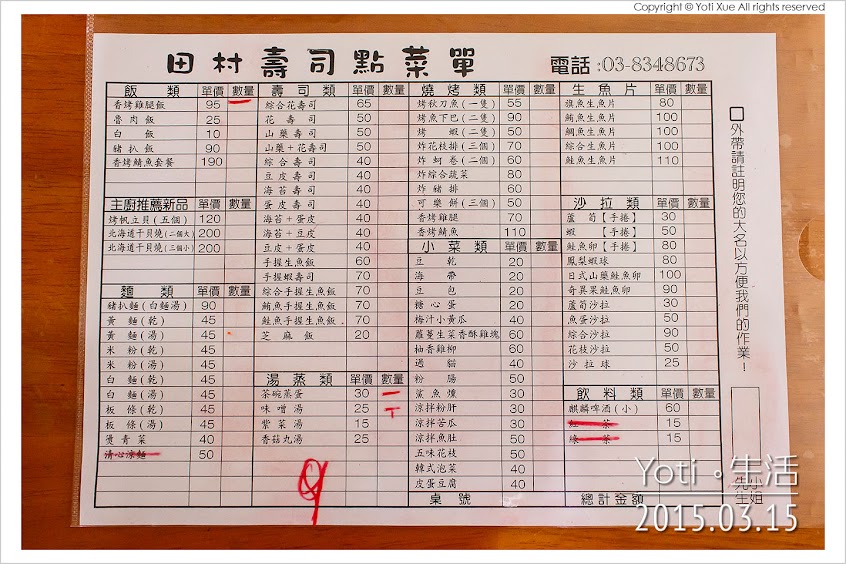 Copyright © Yoti Xue All rights reserved
田村壽司點菜單
電話:03-8348673
飯類 單價 數量
香烤雞腿飯 95
魯肉飯 25
白飯 10
豬扒飯 90
香烤鯖魚套餐 190
主廚推薦新品 單價 數量
烤帆立貝(五個) 120
北海道干貝燒(二個大) 200
北海道干貝燒(三個小) 200
麵類 單價 數量
豬扒麵(白麵湯) 90
黃麵(乾) 45
黃麵(湯) 45
米粉(乾) 45
米粉(湯) 45
白麵(乾) 45
白麵(湯) 45
板條(乾) 45
板條(湯) 45
燙青菜 40
清心涼麵 50
壽司類 單價 數量
綜合花壽司 65
花壽司 50
山藥壽司 50
山藥+花壽司 50
綜合壽司 40
豆皮壽司 40
海苔壽司 40
蛋皮壽司 40
海苔+蛋皮 40
海苔+豆皮 40
豆皮+蛋皮 40
手握生魚飯 60
手握蝦壽司 70
綜合手握生魚飯 70
鮪魚手握生魚飯 70
鮭魚手握生魚飯 70
芝麻飯 20
湯蒸類 單價 數量
茶碗蒸蛋 30 一
味噌湯 25 T
紫菜湯 15
香菇丸湯 25
9
燒烤類 單價 數量
烤秋刀魚(一隻) 55
烤魚下巴(二隻) 90
烤蝦(二隻) 50
炸花枝排(三個) 70
炸蚵卷(二個) 60
炸綜合蔬菜 80
炸豬排 60
可樂餅(三個) 50
香烤雞腿 70
香烤鯖魚 110
小菜類 單價 數量
豆乾 20
海帶 20
豆包 20
糖心蛋 20
梅汁小黃瓜 40
蘿蔓生菜香酥雞塊 60
柚香雞柳 60
過貓 40
粉腸 50
鯊魚燻 30
涼拌粉肝 30
涼拌苦瓜 30
涼拌魚肚 50
五味花枝 50
韓式泡菜 40
皮蛋豆腐 40
桌號 總計金額
生魚片 單價 數量
旗魚生魚片 80
鮪魚生魚片 100
鯛魚生魚片 100
綜合生魚片 100
鮭魚生魚片 110
沙拉類 單價 數量
蘆荀【手捲】 30
蝦【手捲】 50
鮭魚卵【手捲】 80
鳳梨蝦球 80
日式山藥鮭魚卵 100
奇異果鮭魚卵 90
蘆荀沙拉 50
魚蛋沙拉 50
綜合沙拉 90
花枝沙拉 50
沙拉球 25
飲料類 單價 數量
麒麟啤酒(小) 60
紅茶 15
綠茶 15
□外帶請註明您的大名以方便我們的作業!
先生
小姐
Yoti。生活
2015.03.15